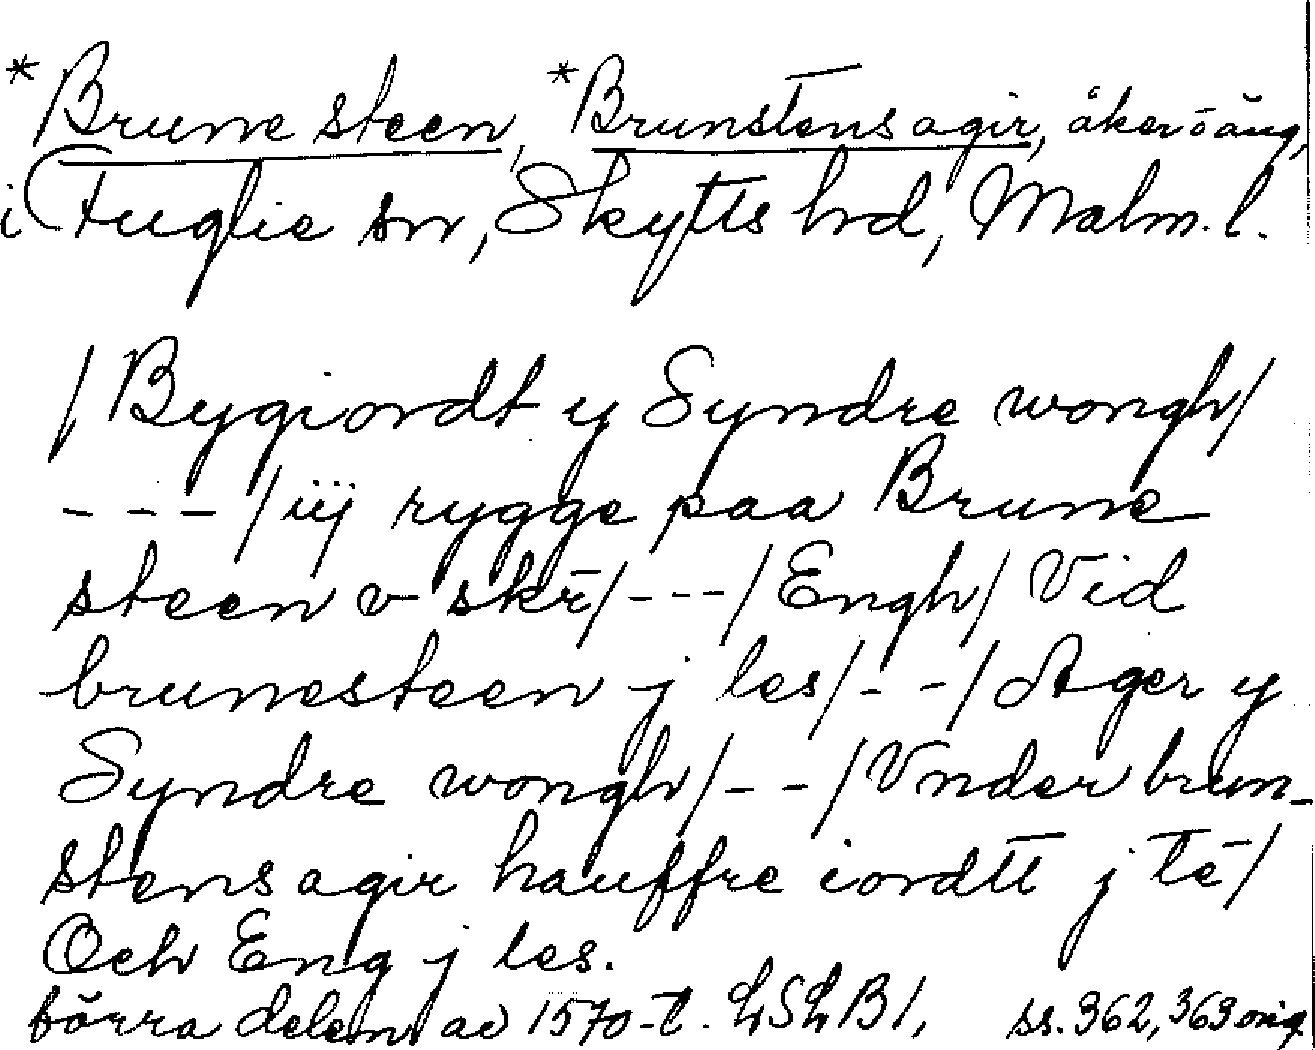 *Brune steen, *Brunstens agir, åker o äng,
i Fuglie sn, Skytts hrd, Malm. l.
/Bygiordt y Syndre wongh/
- - - /iij rygge paa Brune
steen v skr̄/---/Engh/ Vid
brunesteen j les/- -/Ager y
Syndre wongh/- -/Vnder brun-
stens agir hauffre iordtt j tē/
Och Eng j les.
förra delen av 1570-t. LSLB1, ss. 362, 363 orig.